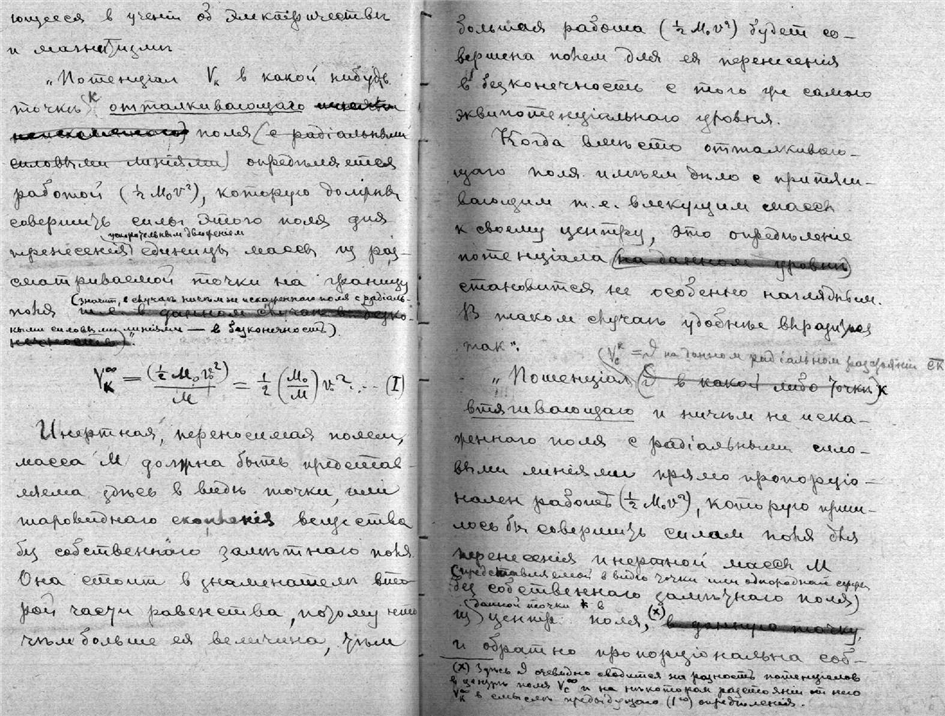 ющееся в ученіи об электричествѣ
и магнитизмѣ
„Потенціал Vк в какой нибудь
точкѣ к отталкивающаго
поля (с радіальными
силовыми линіями) опредѣляется
работой (½ M₀v²), которую должны
совершить силы этого поля для
поступательным движеніем
перенесенія единицы массы из раз-
сматриваемой точки на границу
поля (значит, в случаѣ ничѣм не искаженнаго поля с радіаль-
ными силовыми линіями — в безконечность)“
V_K^∞ = (½ M₀v²)/M = ½ (M₀/M) v² ... (I)
Инертная, переносимая полем,
масса M должна быть представ-
ляема здѣсь в видѣ точки, или
шаровиднаго скопленія вещества
без собственнаго замѣтнаго поля
Она стоит в знаменателѣ вто-
рой части равенства, потому что
чѣм больше ея величина, тѣм
большая работа (½ M₀v²) будет со-
вершена полем для ея перенесенія
в безконечность с того же самаго
эквипотенціальнаго уровня.
Когда вмѣсто отталкиваю-
щаго поля имѣем дѣло с притяги-
вающим т. е. влекущим массы
к своему центру, это опредѣленіе
потенціала (на данном уровнѣ)
становится не особенно наглядным.
В таком случаѣ удобнѣе выразиться
так“:
(V_c^к = на данном радіальном разстояніи CK
„Потенціал ( в какой либо точкѣ) к
втягивающаго и ничѣм не иска-
женнаго поля с радіальными сило-
выми линіями прямо пропорціо-
нален работѣ (½ M₀v²), которую приш-
лось бы совершить силам поля для
перенесенія инертной массы M
(представляемой в видѣ точки или однородной сферы
без собственнаго замѣтнаго поля)
данной точки к в
из центр поля, (x) в данную точку,
и обратно пропорціональна соб-
(x) Здѣсь очевидно сводится на разность потенціалов
в центрѣ поля V_c^∞ и на нѣкотором разстояніи от него
V_к^∞ в смыслѣ предыдущаго (1го) опредѣленія.